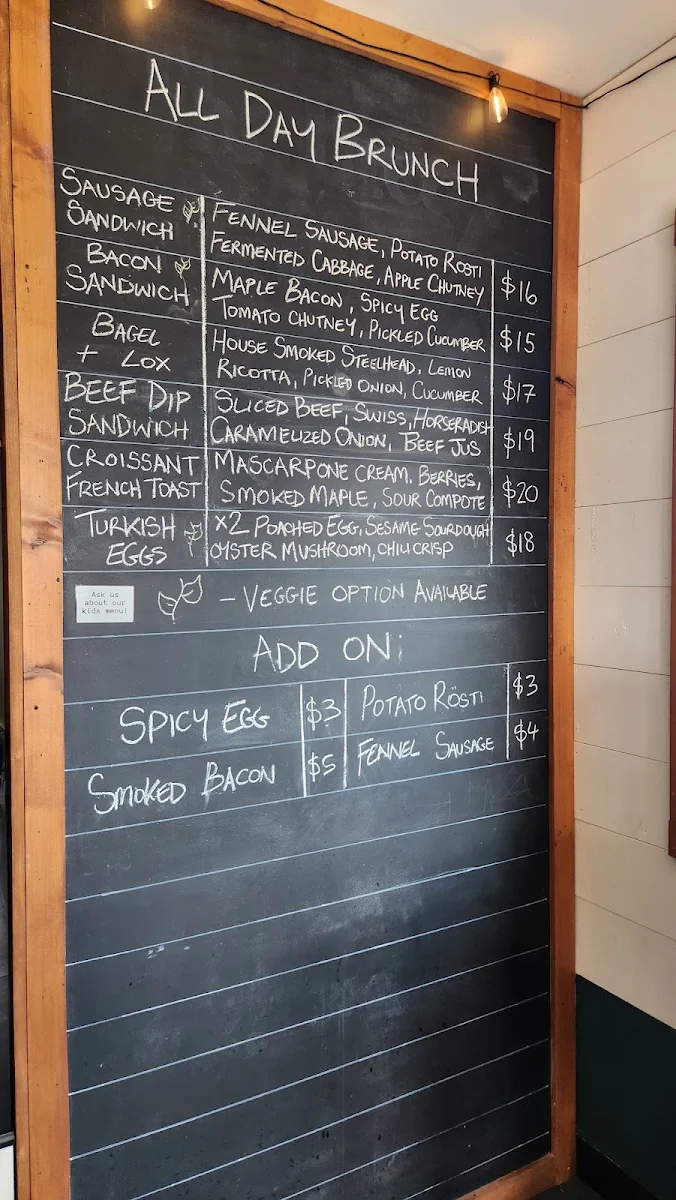 ALL DAY BRUNCH
SAUSAGE SANDWICH
FENNEL SAUSAGE, POTATO RÖSTI
FERMENTED CABBAGE, APPLE CHUTNEY
$16
BACON SANDWICH
MAPLE BACON, SPICY EGG
TOMATO CHUTNEY, PICKLED CUCUMBER
$15
BAGEL + LOX
HOUSE SMOKED STEELHEAD, LEMON
RICOTTA, PICKLED ONION, CUCUMBER
$17
BEEF DIP SANDWICH
SLICED BEEF, SWISS, HORSERADISH
CARAMELIZED ONION, BEEF JUS
$19
CROISSANT FRENCH TOAST
MASCARPONE CREAM, BERRIES,
SMOKED MAPLE, SOUR COMPOTE
$20
TURKISH EGGS
X2 POACHED EGG, SESAME SOURDOUGH
OYSTER MUSHROOM, CHILI CRISP
$18
Ask us
about our
kids menu!
- VEGGIE OPTION AVAILABLE
ADD ON:
SPICY EGG $3 POTATO RÖSTI $3
SMOKED BACON $5 FENNEL SAUSAGE $4